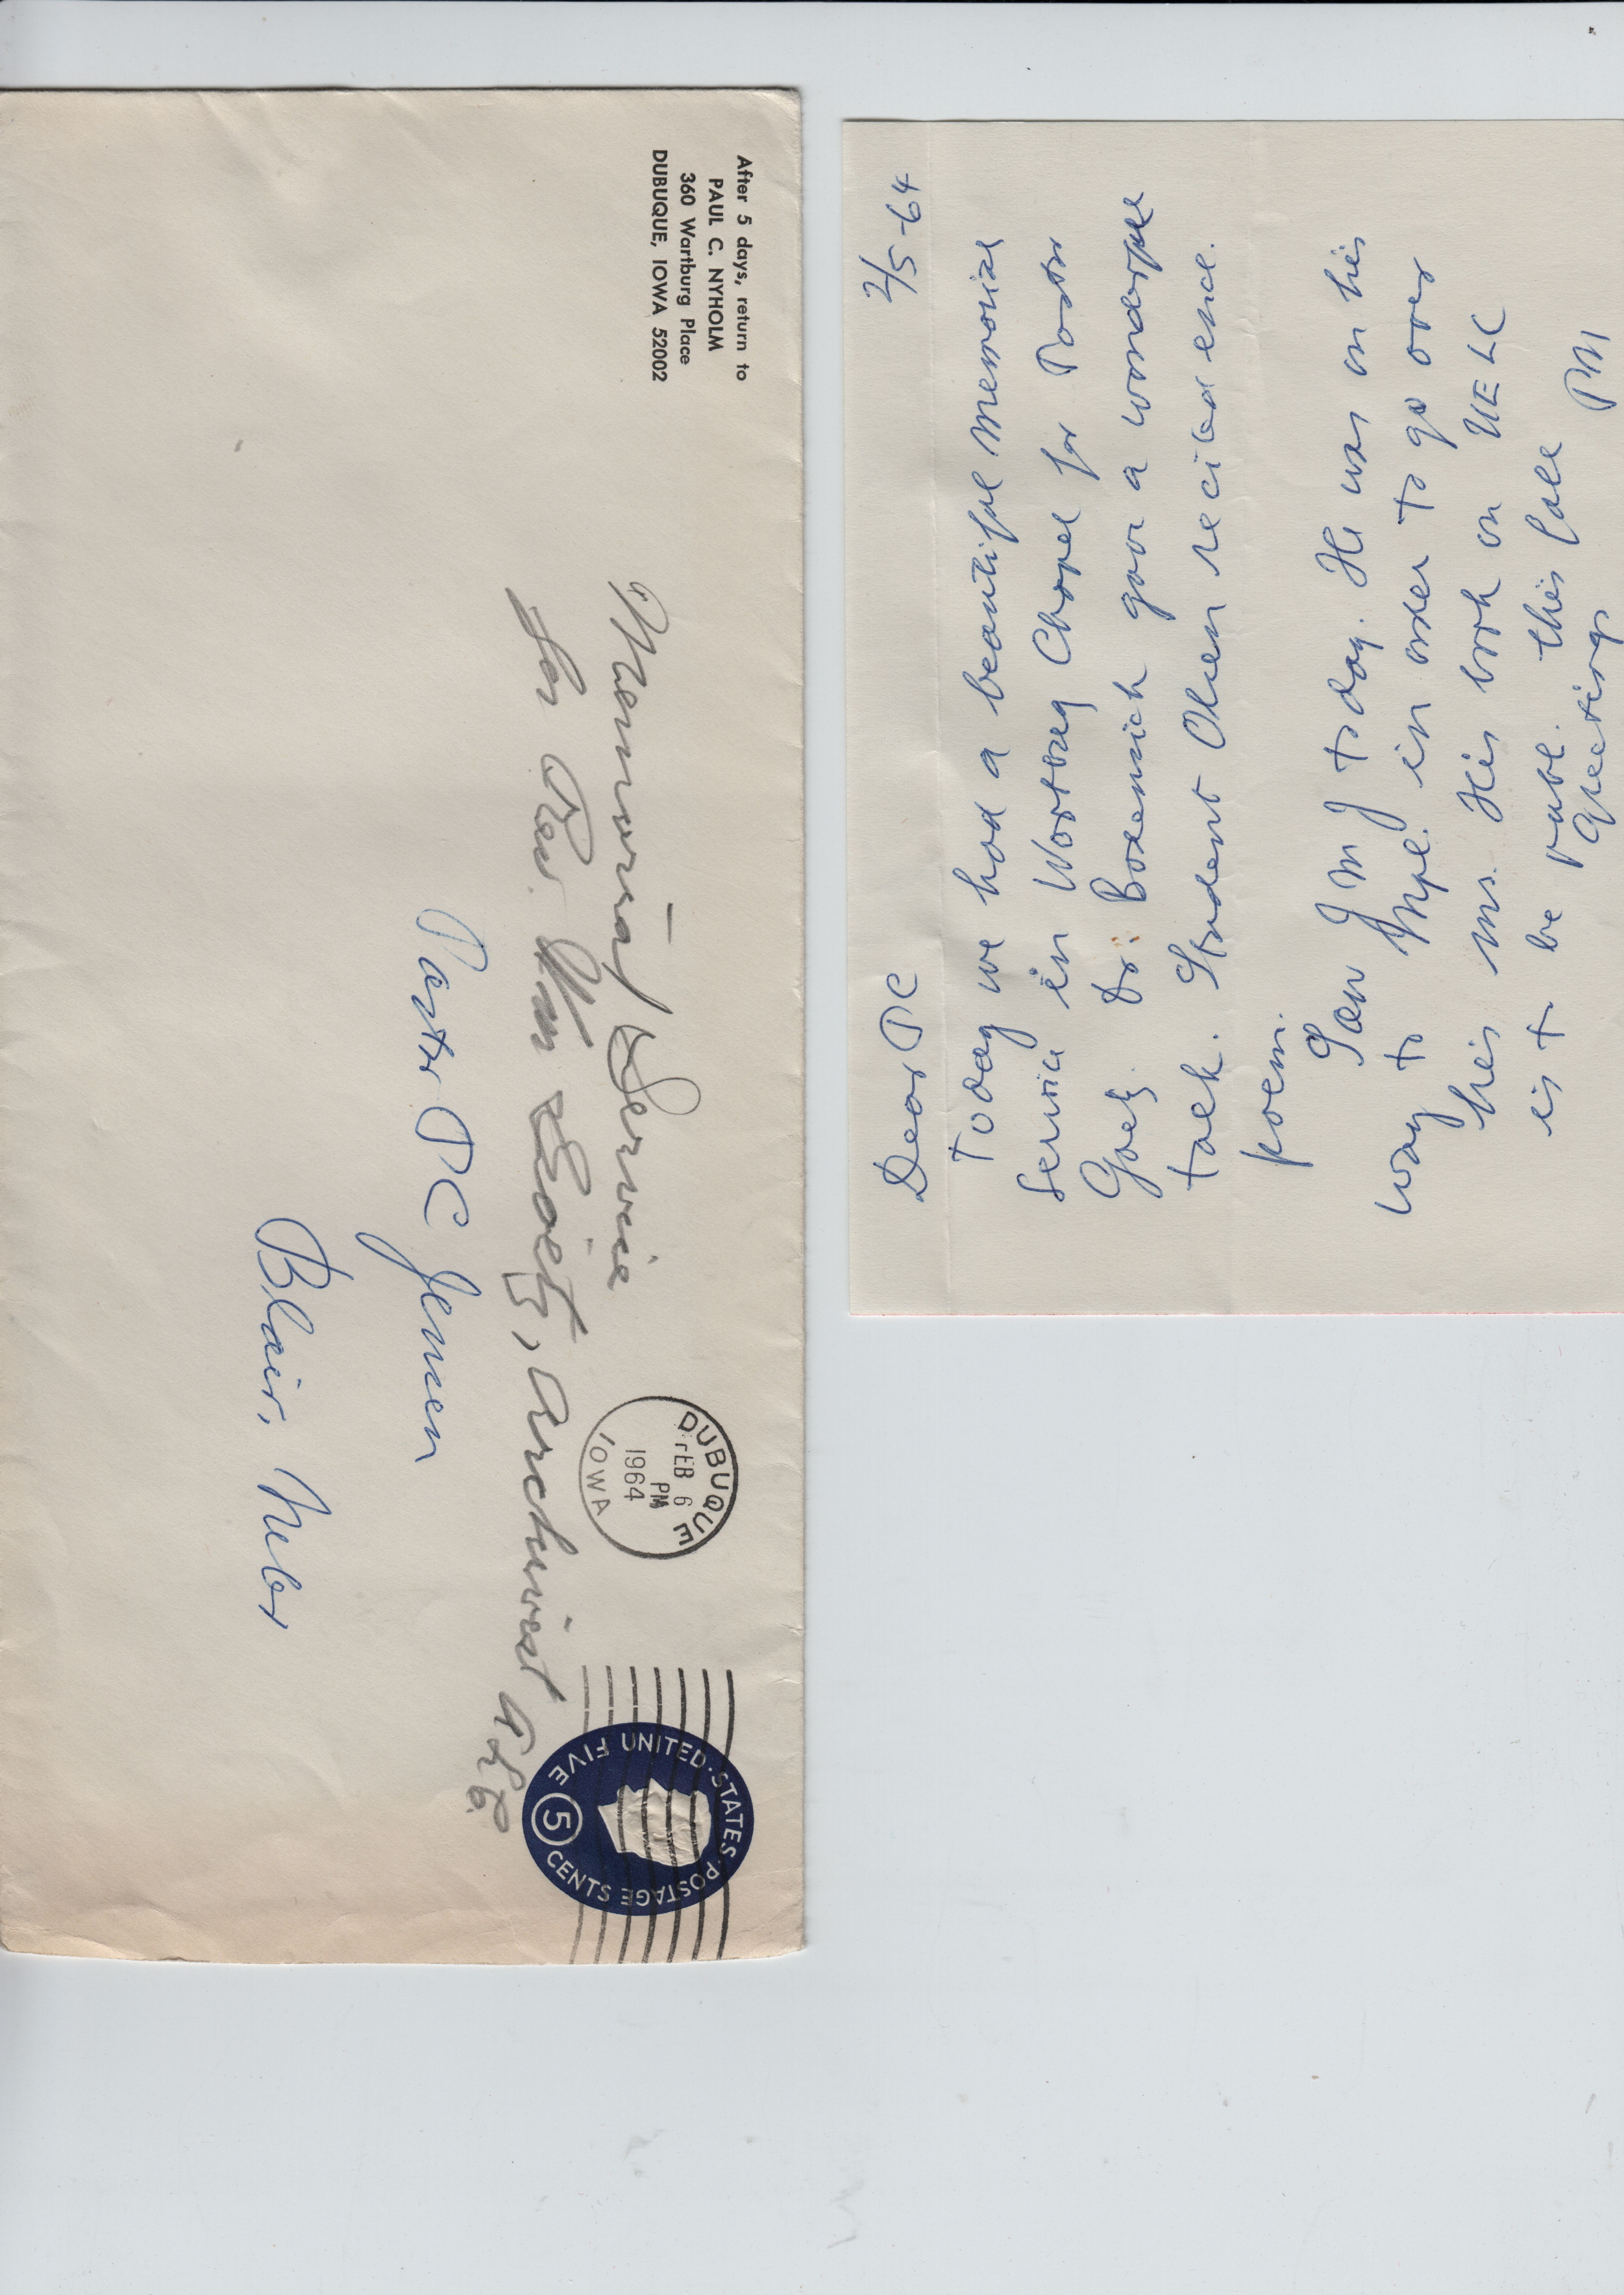 After 5 days, return to
PAUL C. NYHOLM
360 Wartburg Place
DUBUQUE, IOWA 52002
DUBUQUE
FEB 6
PM
1964
IOWA
UNITED STATES POSTAGE
FIVE 5 CENTS
Memorial Service
for Rev. Wm Goetz, Archivist ALC
Pastor P C Jensen
Blair, Nebr
2/5-64
Dear PC
Today we had a beautiful memorial
service in Wartburg Chapel for Pastor
Goetz. Dr. Bodensieck gave a wonderful
talk. Student Olsen recited enc.
poem.
Saw J M J today. He was on his
way to Mpl. in order to go over
his ms. His book on UELC
is to be publ. this fall
Greetings
PN